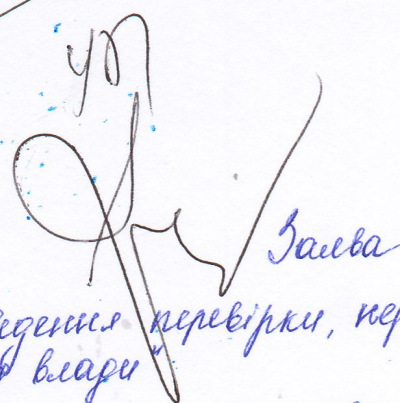 Залва
едення перевірки, пер
влади"